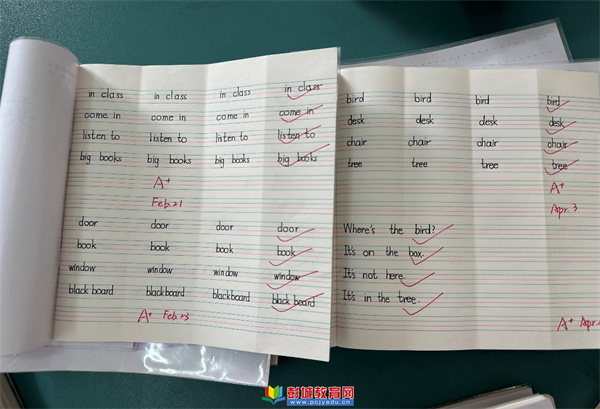 in class in class in class in class
come in come in come in come in
listen to listen to listen to listen to
big books big books big books big books
A+
Feb.21
door door door door
book book book book
window window window window
black board blackboard blackboard black board
A+ Feb.23
bird bird bird bird
desk desk desk desk
chair chair chair chair
tree tree tree tree
A+
Apr.3
Where's the bird?
It's on the box.
It's not here.
It's in the tree.
A+ Apr.
彭城教育网
www.pcjyedu.cn